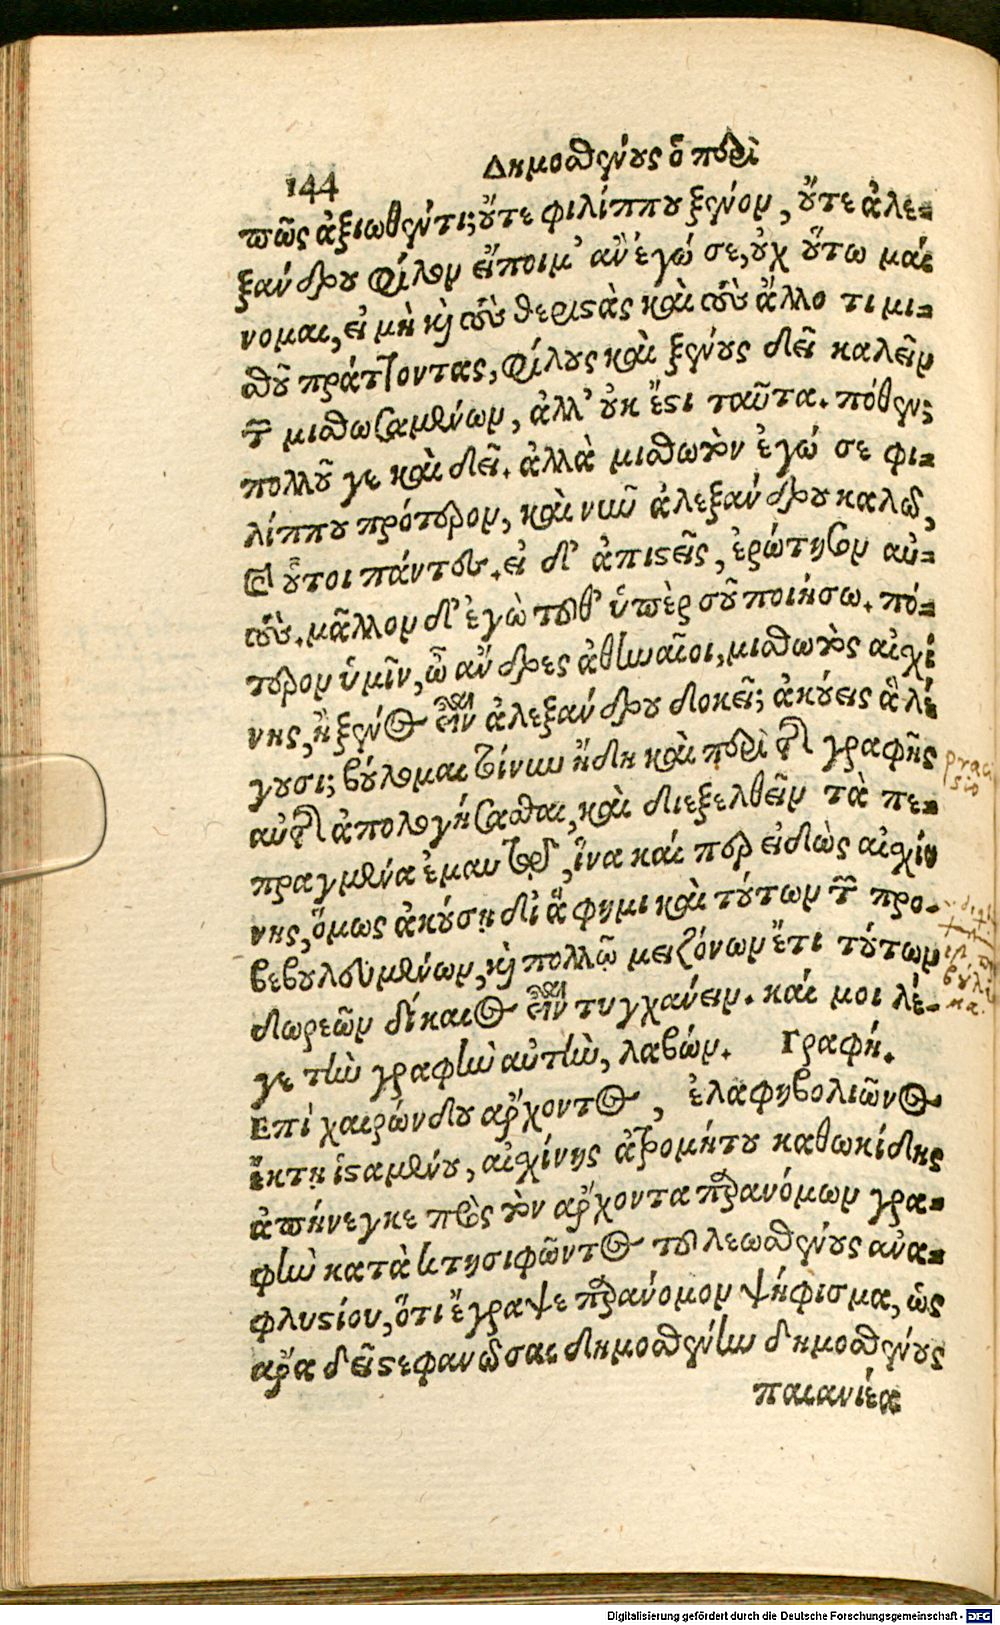 144
Δημοσθένους ὁ περὶ
πῶς ἀξιωθέντι; οὔτε φιλίππου ξένον, οὔτε ἀλε-
ξάνδρου φίλον εἴποιμ' ἂν ἐγώ σε, οὐχ οὕτω μαί
νομαι, εἰ μὴ καὶ τοὺς θεριστὰς καὶ τοὺς ἄλλο τι μι-
σθοῦ πράττοντας, φίλους καὶ ξένους δεῖ καλεῖν
τῶν μισθωσαμένων, ἀλλ' οὐκ ἔστι ταῦτα. πόθεν;
πολλοῦ γε καὶ δεῖ. ἀλλὰ μισθωτὸν ἐγώ σε φι-
λίππου πρότερον, καὶ νῦν ἀλεξάνδρου καλῶ,
καὶ οὗτοι πάντες. εἰ δ' ἀπιστεῖς, ἐρώτησον αὐ-
τούς. μᾶλλον δ' ἐγὼ τοῦθ' ὑπὲρ σοῦ ποιήσω. πό-
τερον ὑμῖν, ὦ ἄνδρες ἀθηναῖοι, μισθωτὸς αἰσχί
νης, ἢ ξένος εἶναι ἀλεξάνδρου δοκεῖ; ἀκούεις ἃ λέ
γουσι; βούλομαι τοίνυν ἤδη καὶ περὶ τῆς γραφῆς
αὐτῆς ἀπολογήσασθαι, καὶ διεξελθεῖν τὰ πε-
πραγμένα ἐμαυτῷ, ἵνα καί περ εἰδὼς αἰσχίν
νης, ὅμως ἀκούσῃ δι' ἅ φημι καὶ τούτων τῶν προ-
βεβουλευμένων, καὶ πολλῷ μειζόνων ἔτι τούτων
δωρεῶν δίκαιος εἶναι τυγχάνειν. καί μοι λέ-
γε τὴν γραφὴν αὐτὴν, λαβών. Γραφή.
Επὶ χαιρώνδου ἄρχοντος, ἐλαφηβολιῶνος
ἕκτῃ ἱσταμένου, αἰσχίνης ἀτρομήτου καθωκίδης
ἀπήνεγκε πρὸς τὸν ἄρχοντα παρανόμων γρα-
φὴν κατὰ κτησιφῶντος τοῦ λεωσθένους ἀνα-
φλυστίου, ὅτι ἔγραψε παράνομον ψήφισμα, ὡς
ἄρα δεῖ στεφανῶσαι δημοσθένην δημοσθένους
παιανιέα
Digitalisierung gefördert durch die Deutsche Forschungsgemeinschaft - DFG